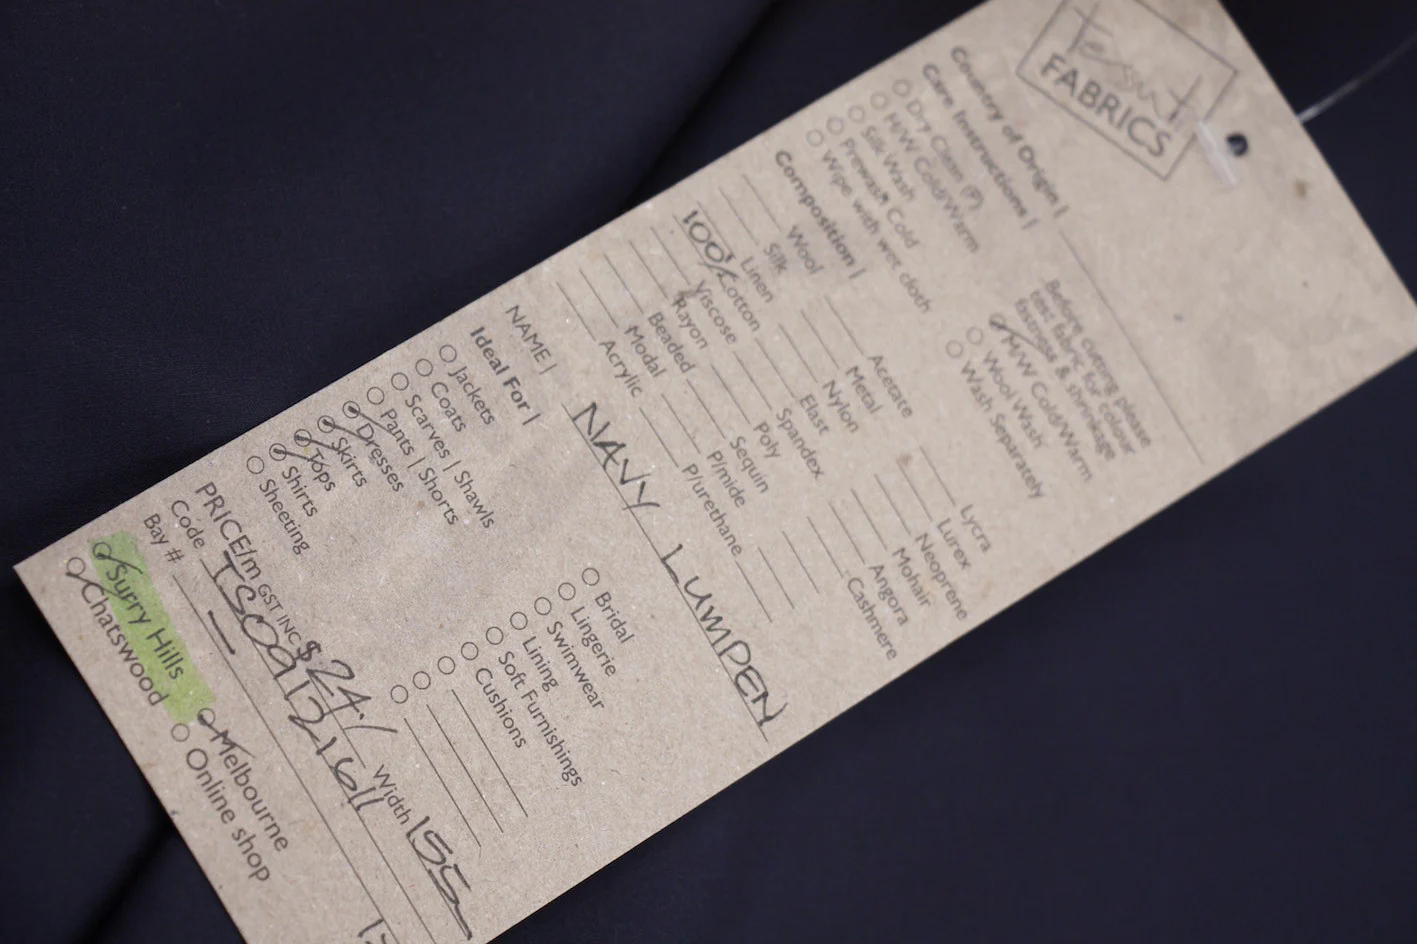 Tessuti
FABRICS
Country of Origin |
Care Instructions |
Dry Clean (P)
M/W Cold/Warm
Silk Wash
Prewash Cold
Wipe with wet cloth
Before cutting please
test fabric for colour
fastness & shrinkage
M/W Cold/Warm
Wool Wash
Wash Separately
Composition |
Wool
Silk
Linen
100% Cotton
Viscose
Rayon
Beaded
Modal
Acrylic
Acetate
Metal
Nylon
Elast
Spandex
Poly
Sequin
P/mide
P/urethane
Lycra
Lurex
Neoprene
Mohair
Angora
Cashmere
NAME | NAVY LUMPEN
Ideal For |
Jackets
Coats
Scarves | Shawls
Pants | Shorts
Dresses
Skirts
Tops
Shirts
Sheeting
Bridal
Lingerie
Swimwear
Lining
Soft Furnishings
Cushions
PRICE/m GST INC $24./ Width 155
Code TS09121611
Bay # –
Surry Hills
Chatswood
Melbourne
Online shop